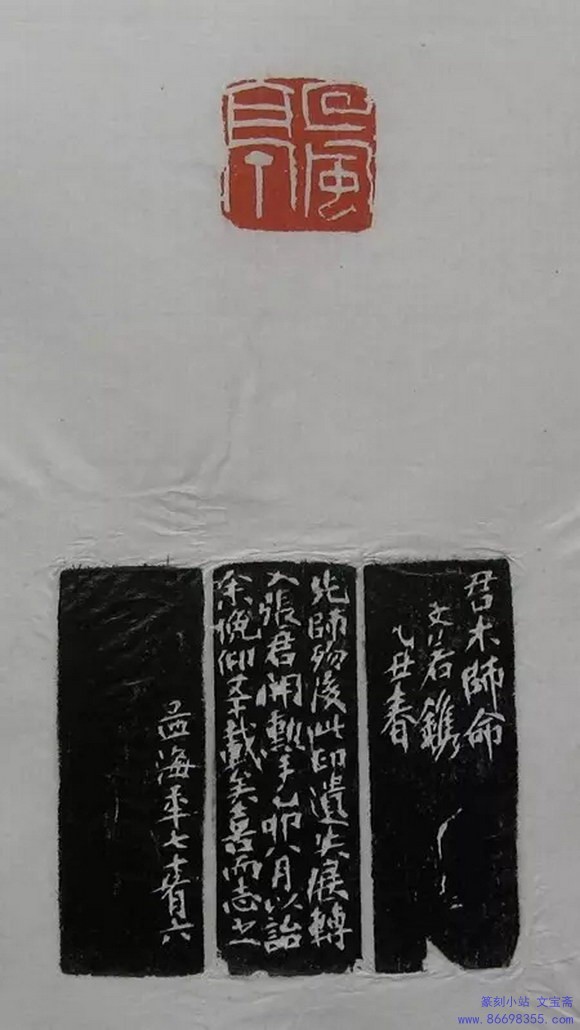 回風
亭
君木師命
文若鐫
乙丑春
先師殁後此印遺失展轉
入張君開勲手乙卯八月以詒
余俛仰五十載矣喜而志之
孟海年七十有六
篆刻小站 文宝斋
www.86698355.com